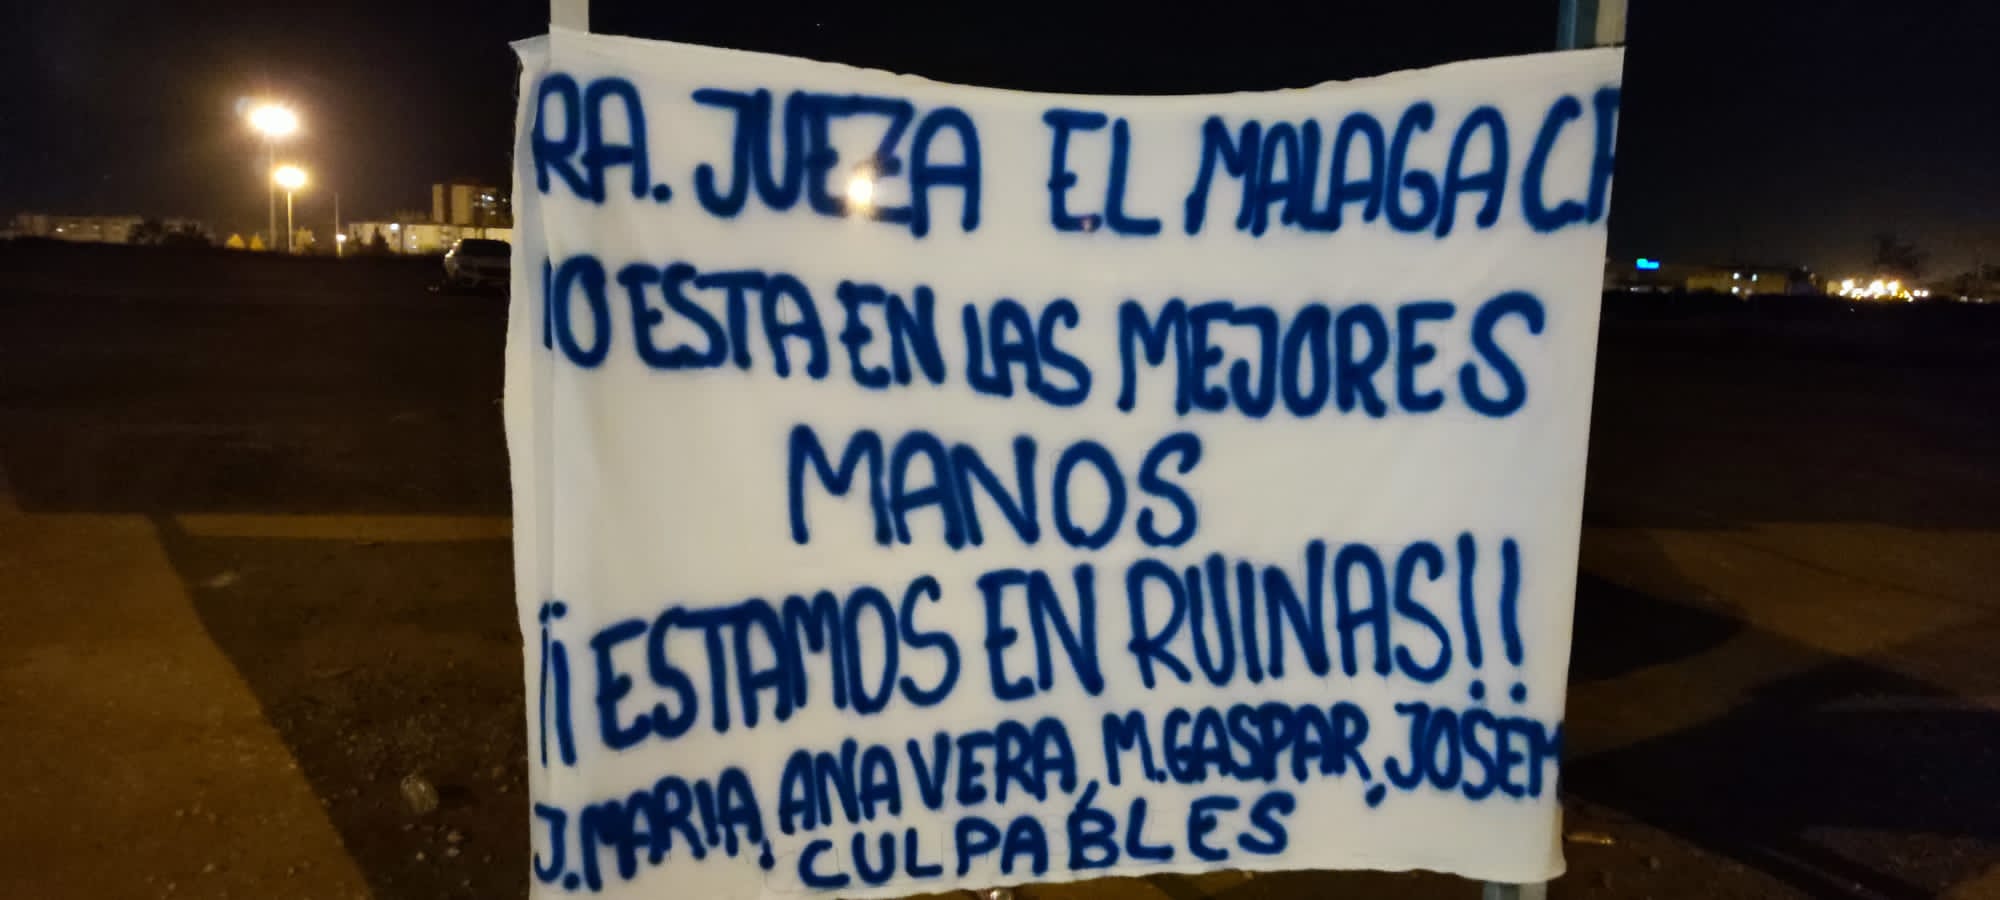 RA. JUEZA EL MALAGA CF
NO ESTA EN LAS MEJORES
MANOS
¡¡ESTAMOS EN RUINAS!!
J. MARIA, ANA VERA, M. GASPAR, JOSEM
CULPABLES